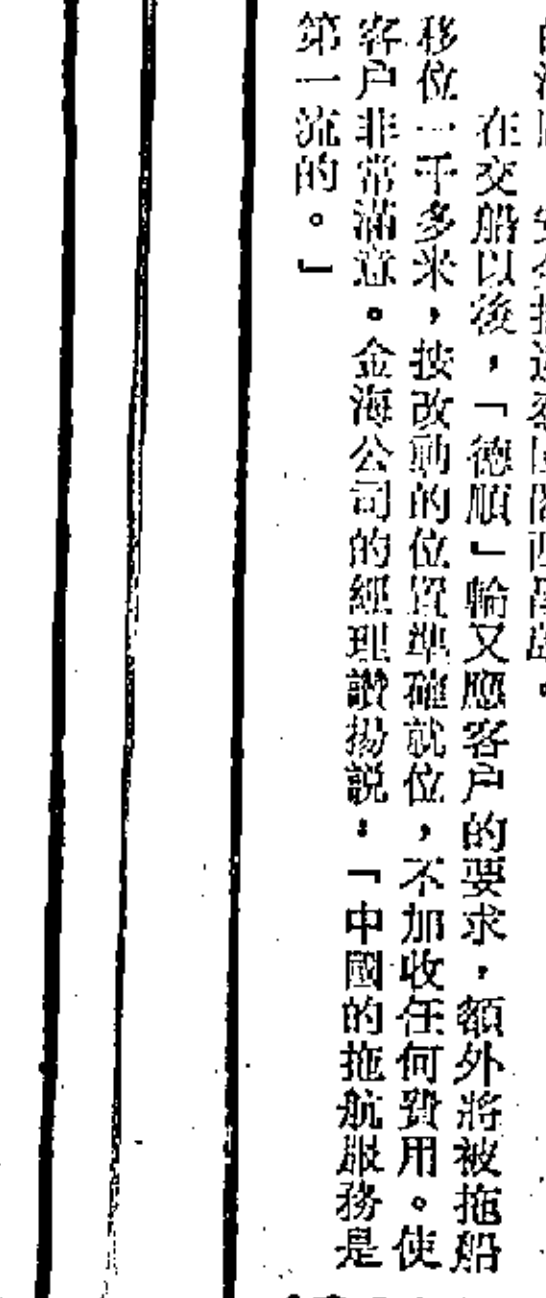 在交船以後，「德順」輪又應客户的要求，額外將被拖船
移位一千多米，按改動的位置準確就位，不加收任何費用。使
客户非常滿意。金海公司的經理讚揚説：「中國的拖航服務是
第一流的。」